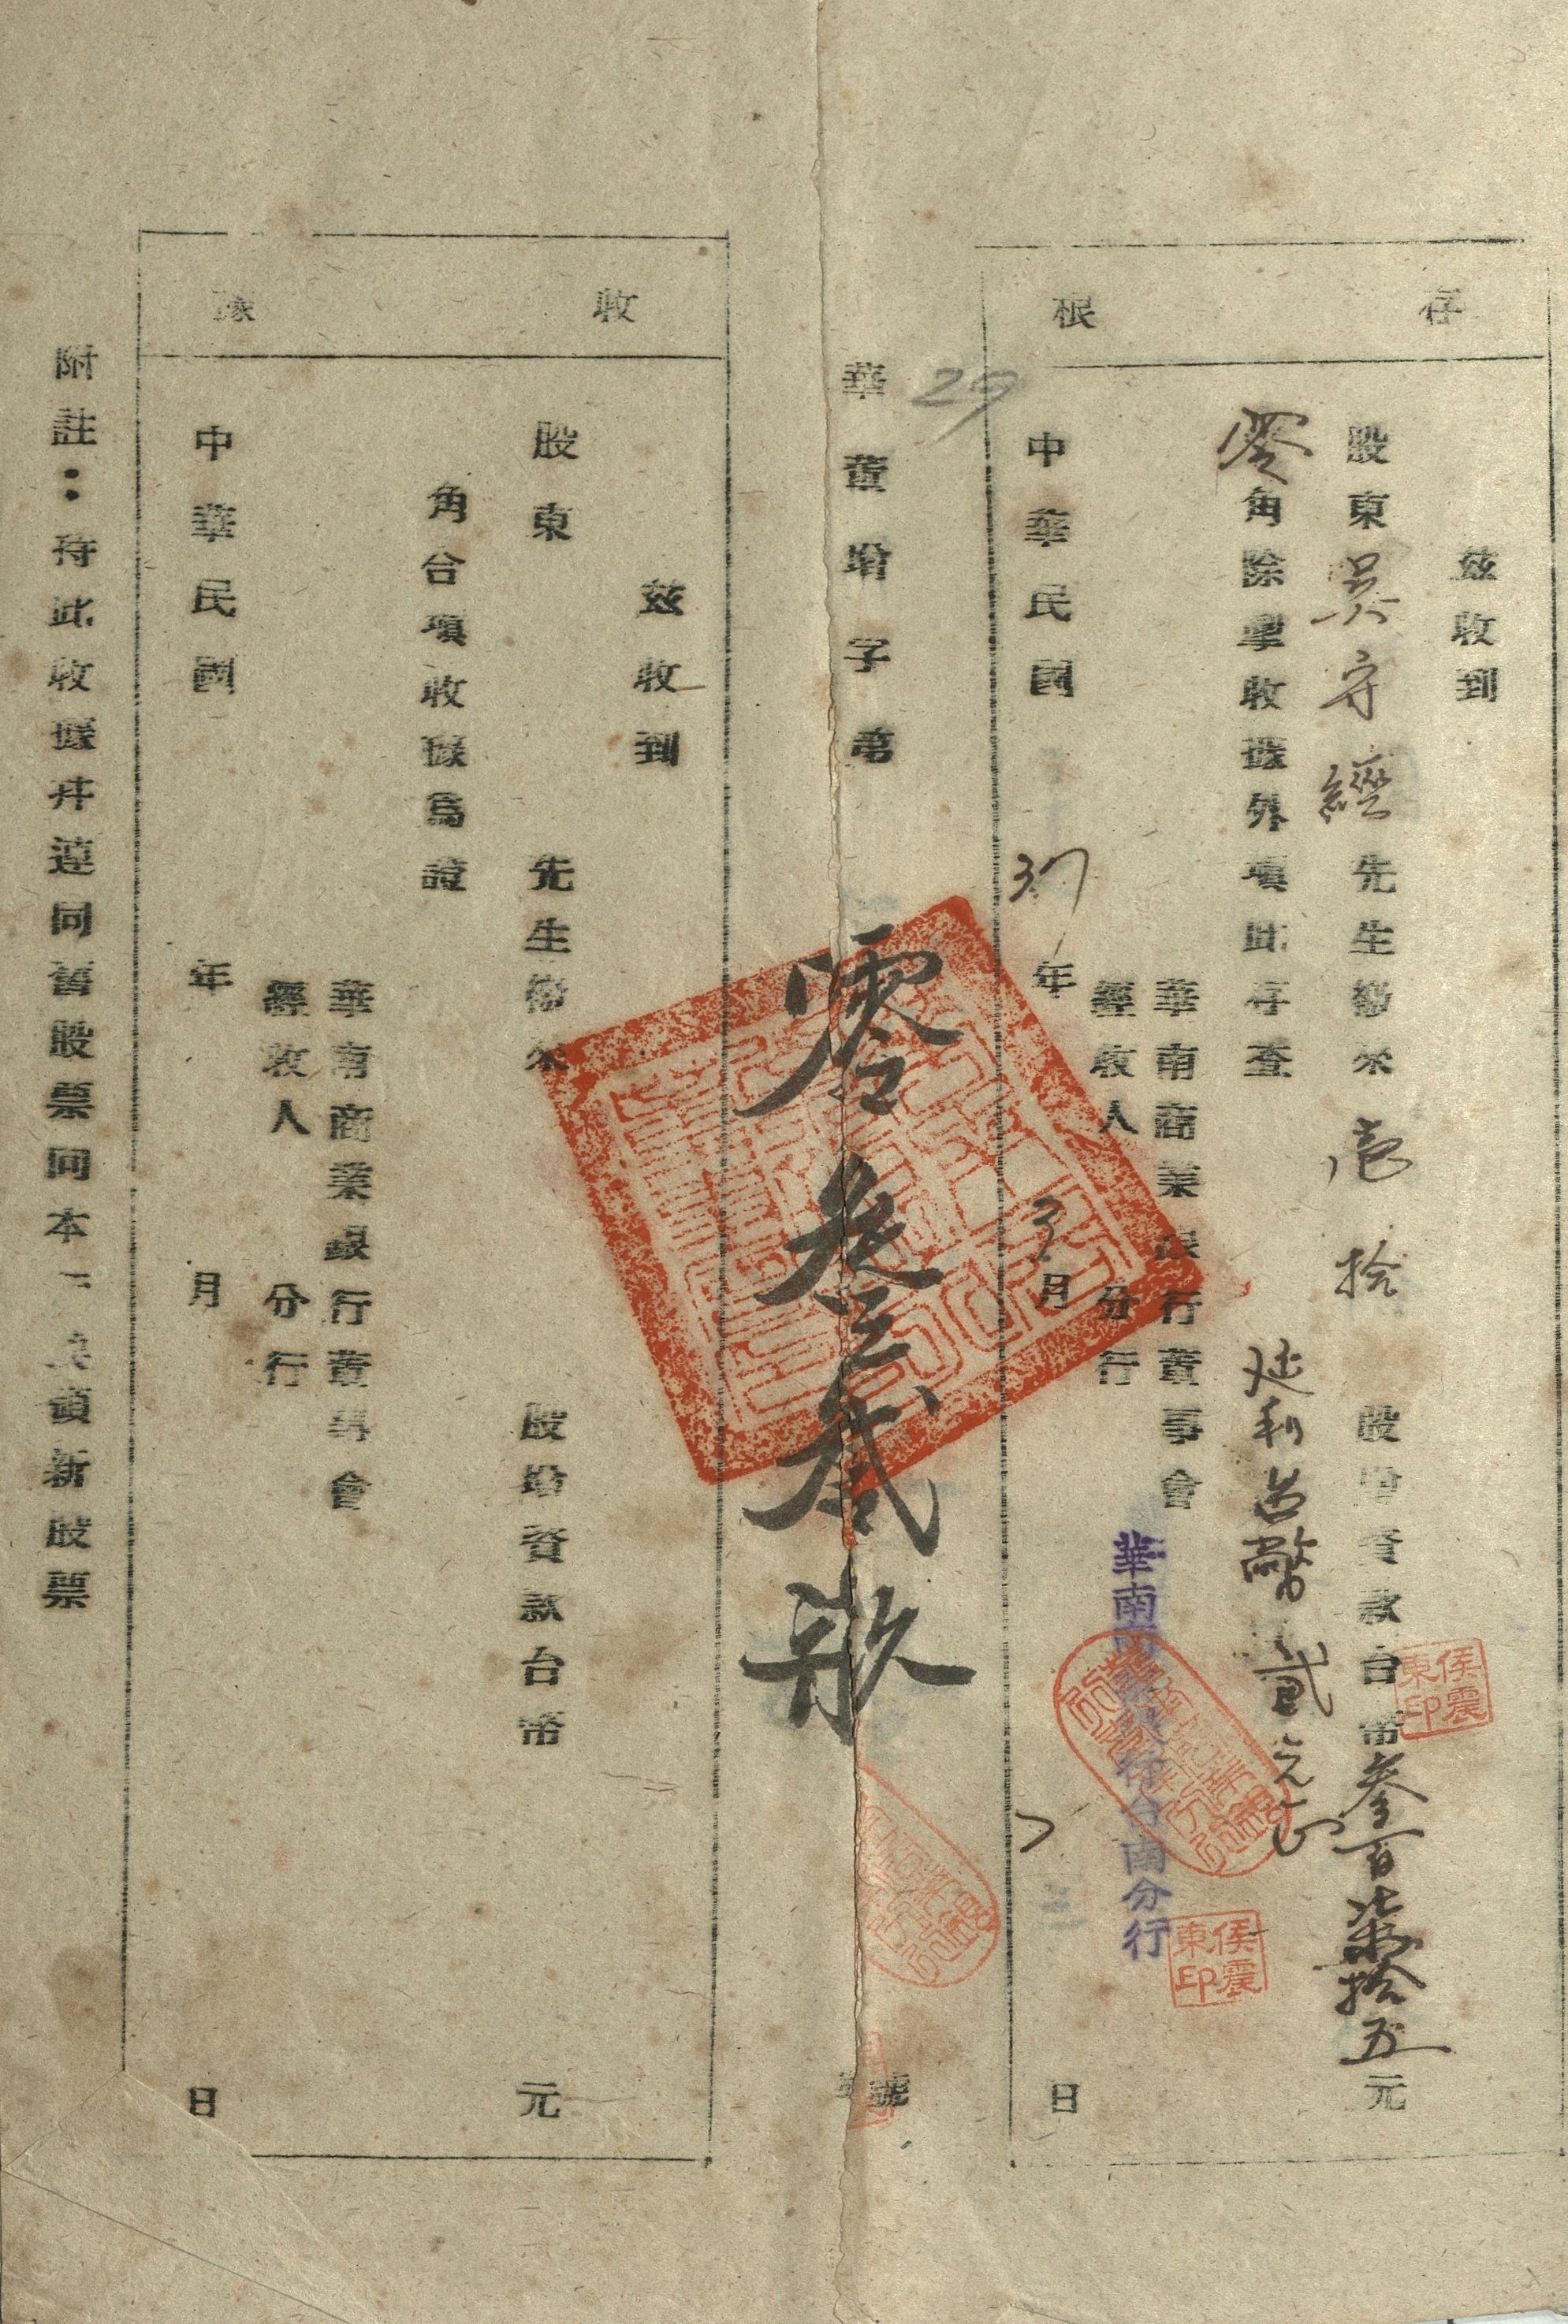 存根
茲收到
股東吳守經先生繳來壹拾股增資款台幣叁百柒拾五元
零角除掣收據外項此存查
延利台幣貳元正
華南商業銀行董事會
華南商業銀行台南分行
經收人 分行
中華民國37年3月7日
侯震東印
侯震東印
29
華董增字第零叁貳玖號
收據
茲收到
股東 先生繳來 股增資款台幣 元
角合項收據為證
華南商業銀行董事會
經收人 分行
中華民國 年 月 日
附註：持此收據并連同舊股票同本行換領新股票